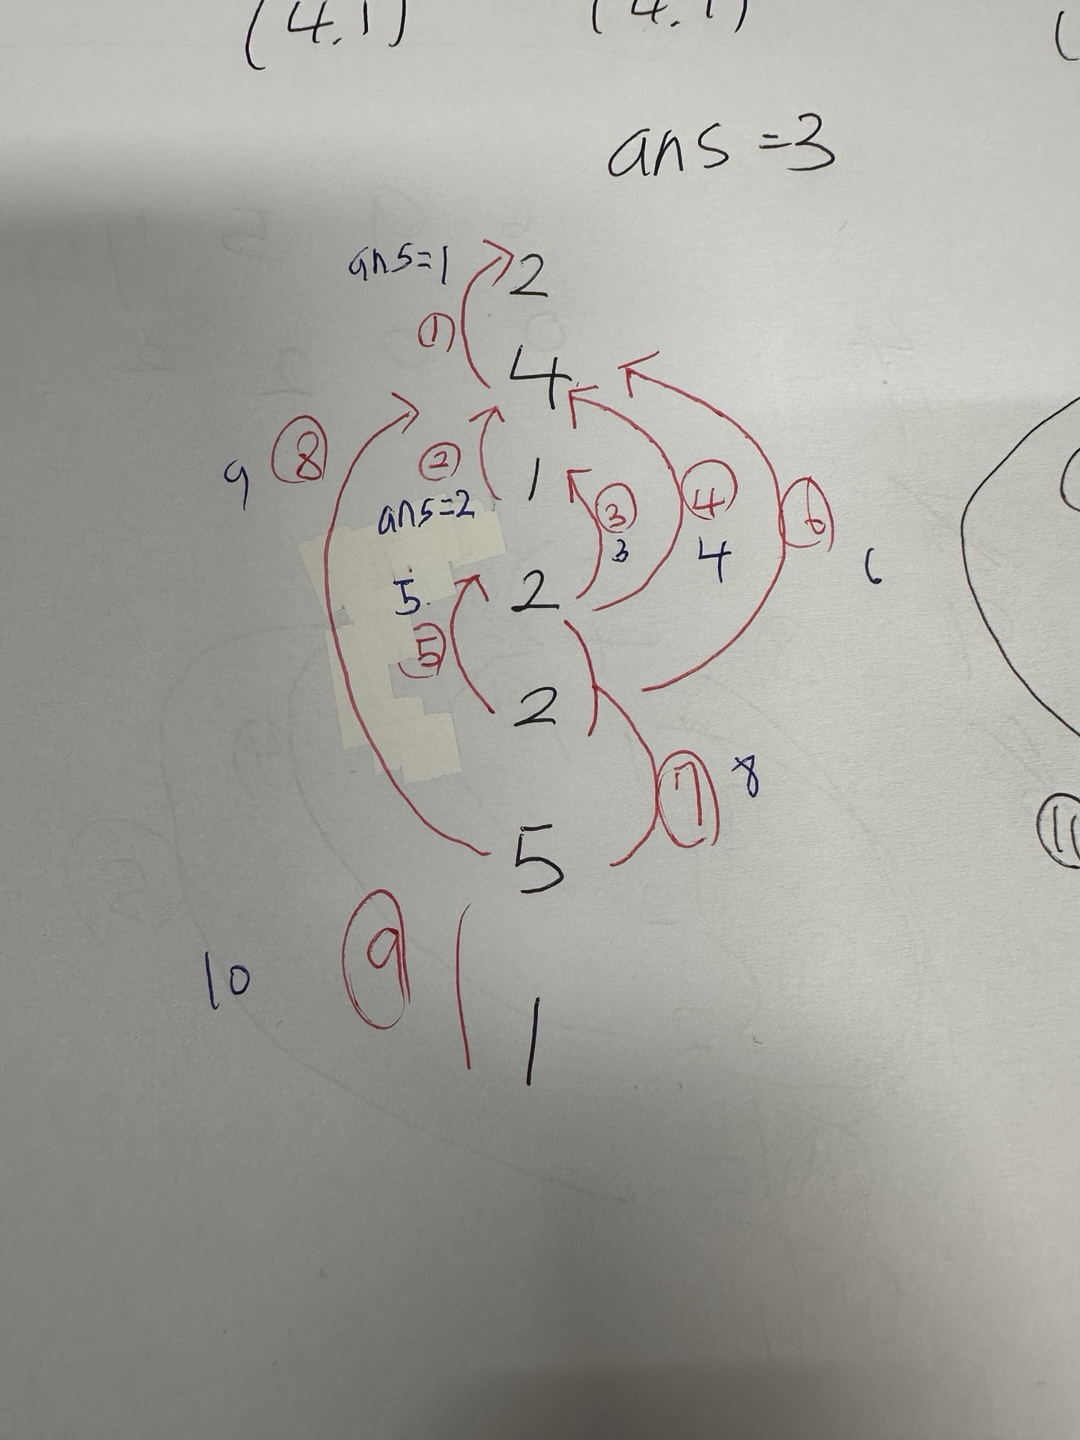 (4.1) (4.1) (
ans=3
ans=1 2
①
4
9 ⑧ ② 1 ③ ④ ⑥
ans=2 3 4 6
5 2
⑤
2
⑦ 8
5
⑪
⑨
10
1